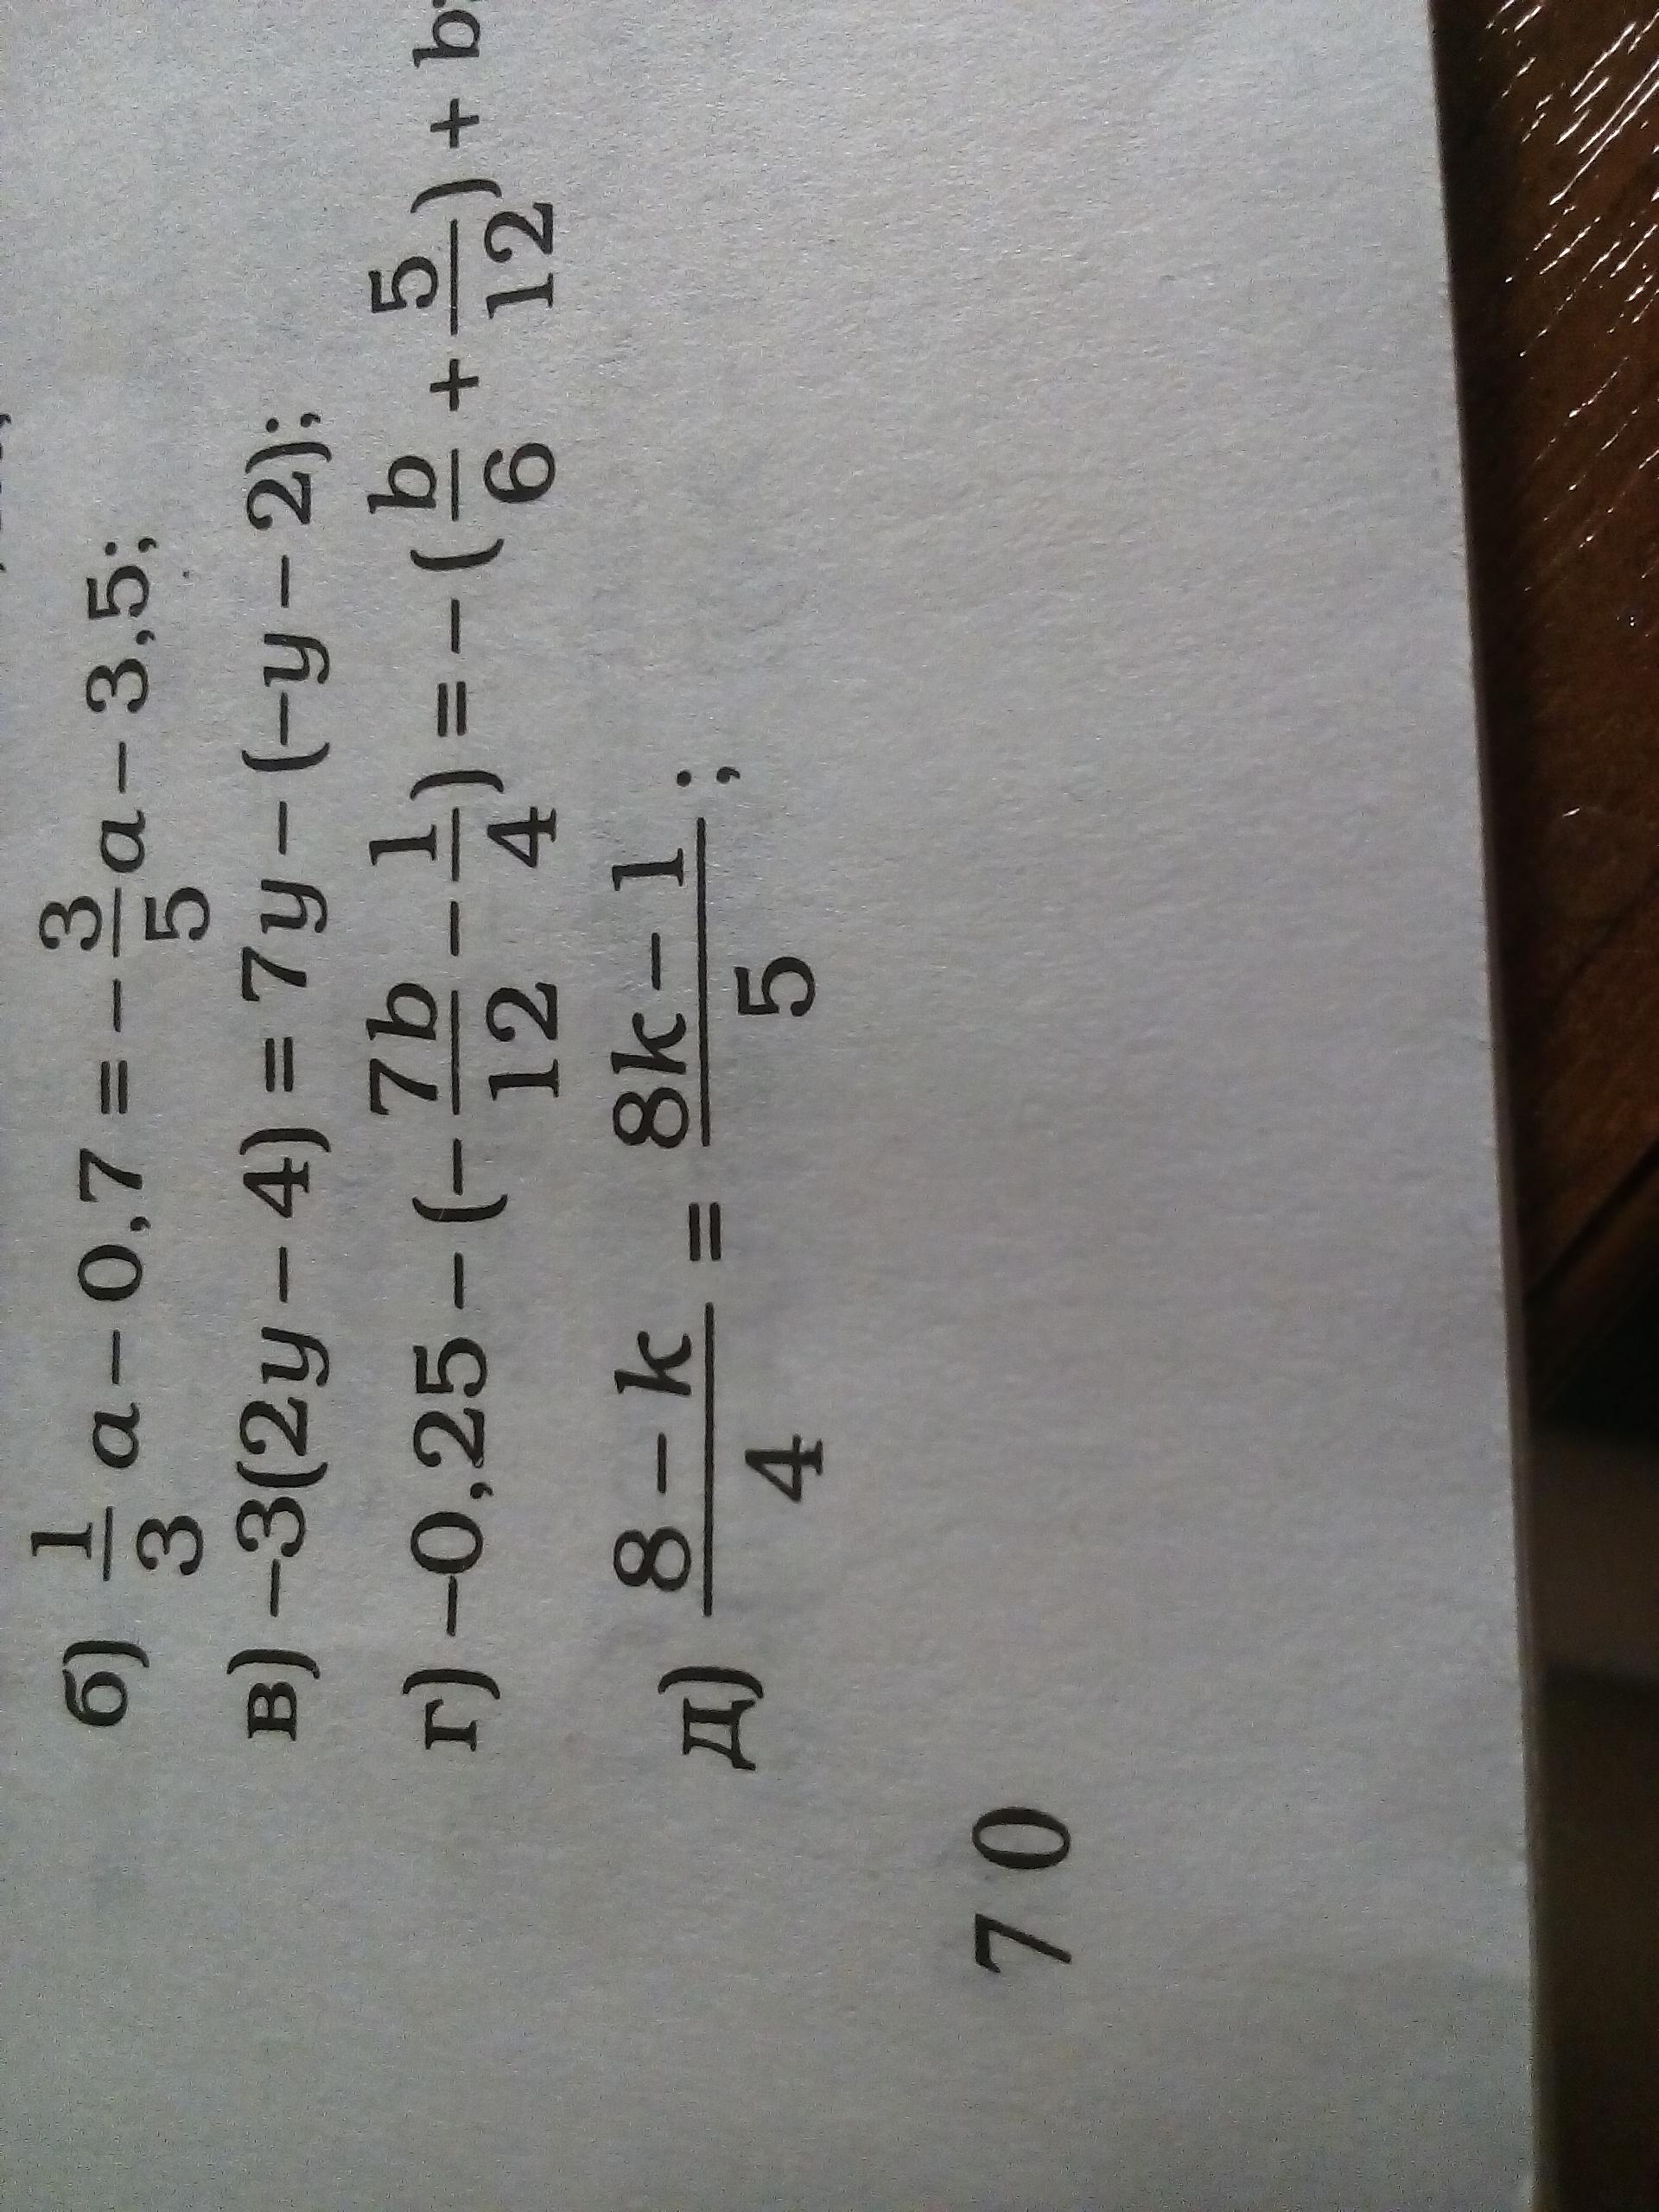 б) \frac{1}{3}a – 0,7 = –\frac{3}{5}a – 3,5;
в) –3(2y – 4) = 7y – (–y – 2);
г) –0,25 – (–\frac{7b}{12} – \frac{1}{4}) = – (\frac{b}{6} + \frac{5}{12}) + b
д) \frac{8 – k}{4} = \frac{8k – 1}{5};
70